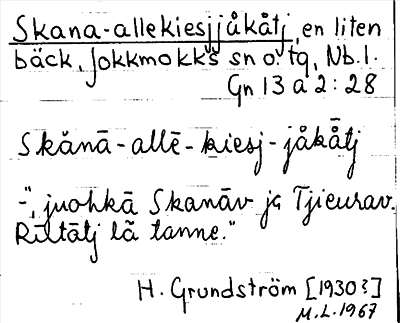 Skana-allekiesjjåkåtj, en liten
bäck, Jokkmokks sn o. tq, Nb. l.
Gn 13 a 2 : 28
Skånā-allē-kiesj-jåkåtj
-", juohkā Skanāv ja Tjieurav.
Riltātj lā tanne."
H. Grundström [1930?]
M.L. 1967